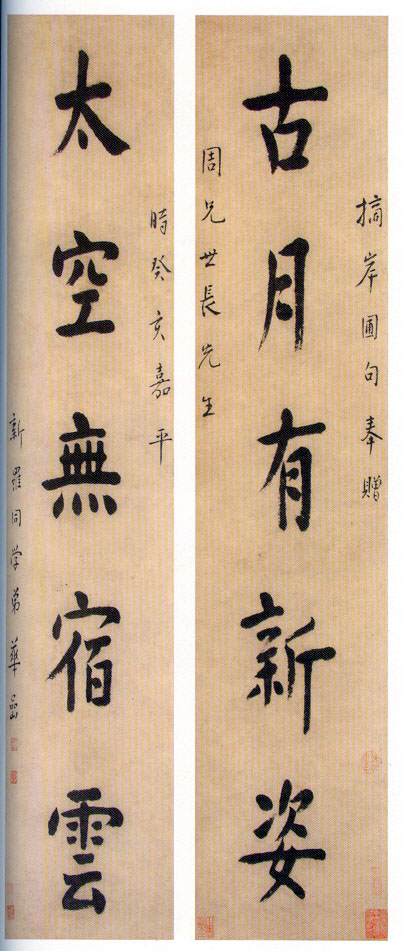 摘岸圃句奉贈
古月有新姿
周兄世長先生
時癸亥嘉平
太空無宿雲
新羅同学弟華嵒